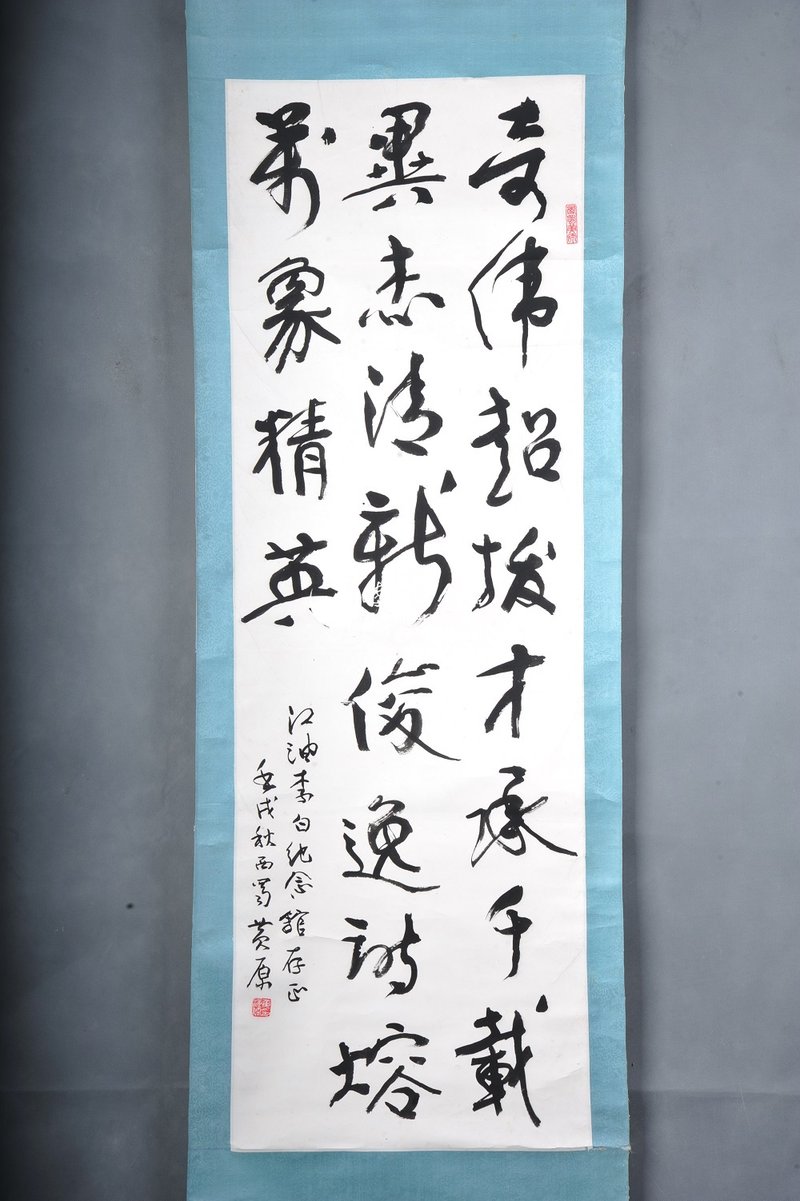 奇伟超拔才承千载
異杰清新俊逸诗熔
萬象精英
江油李白纪念館存正
壬戌秋西蜀黄原